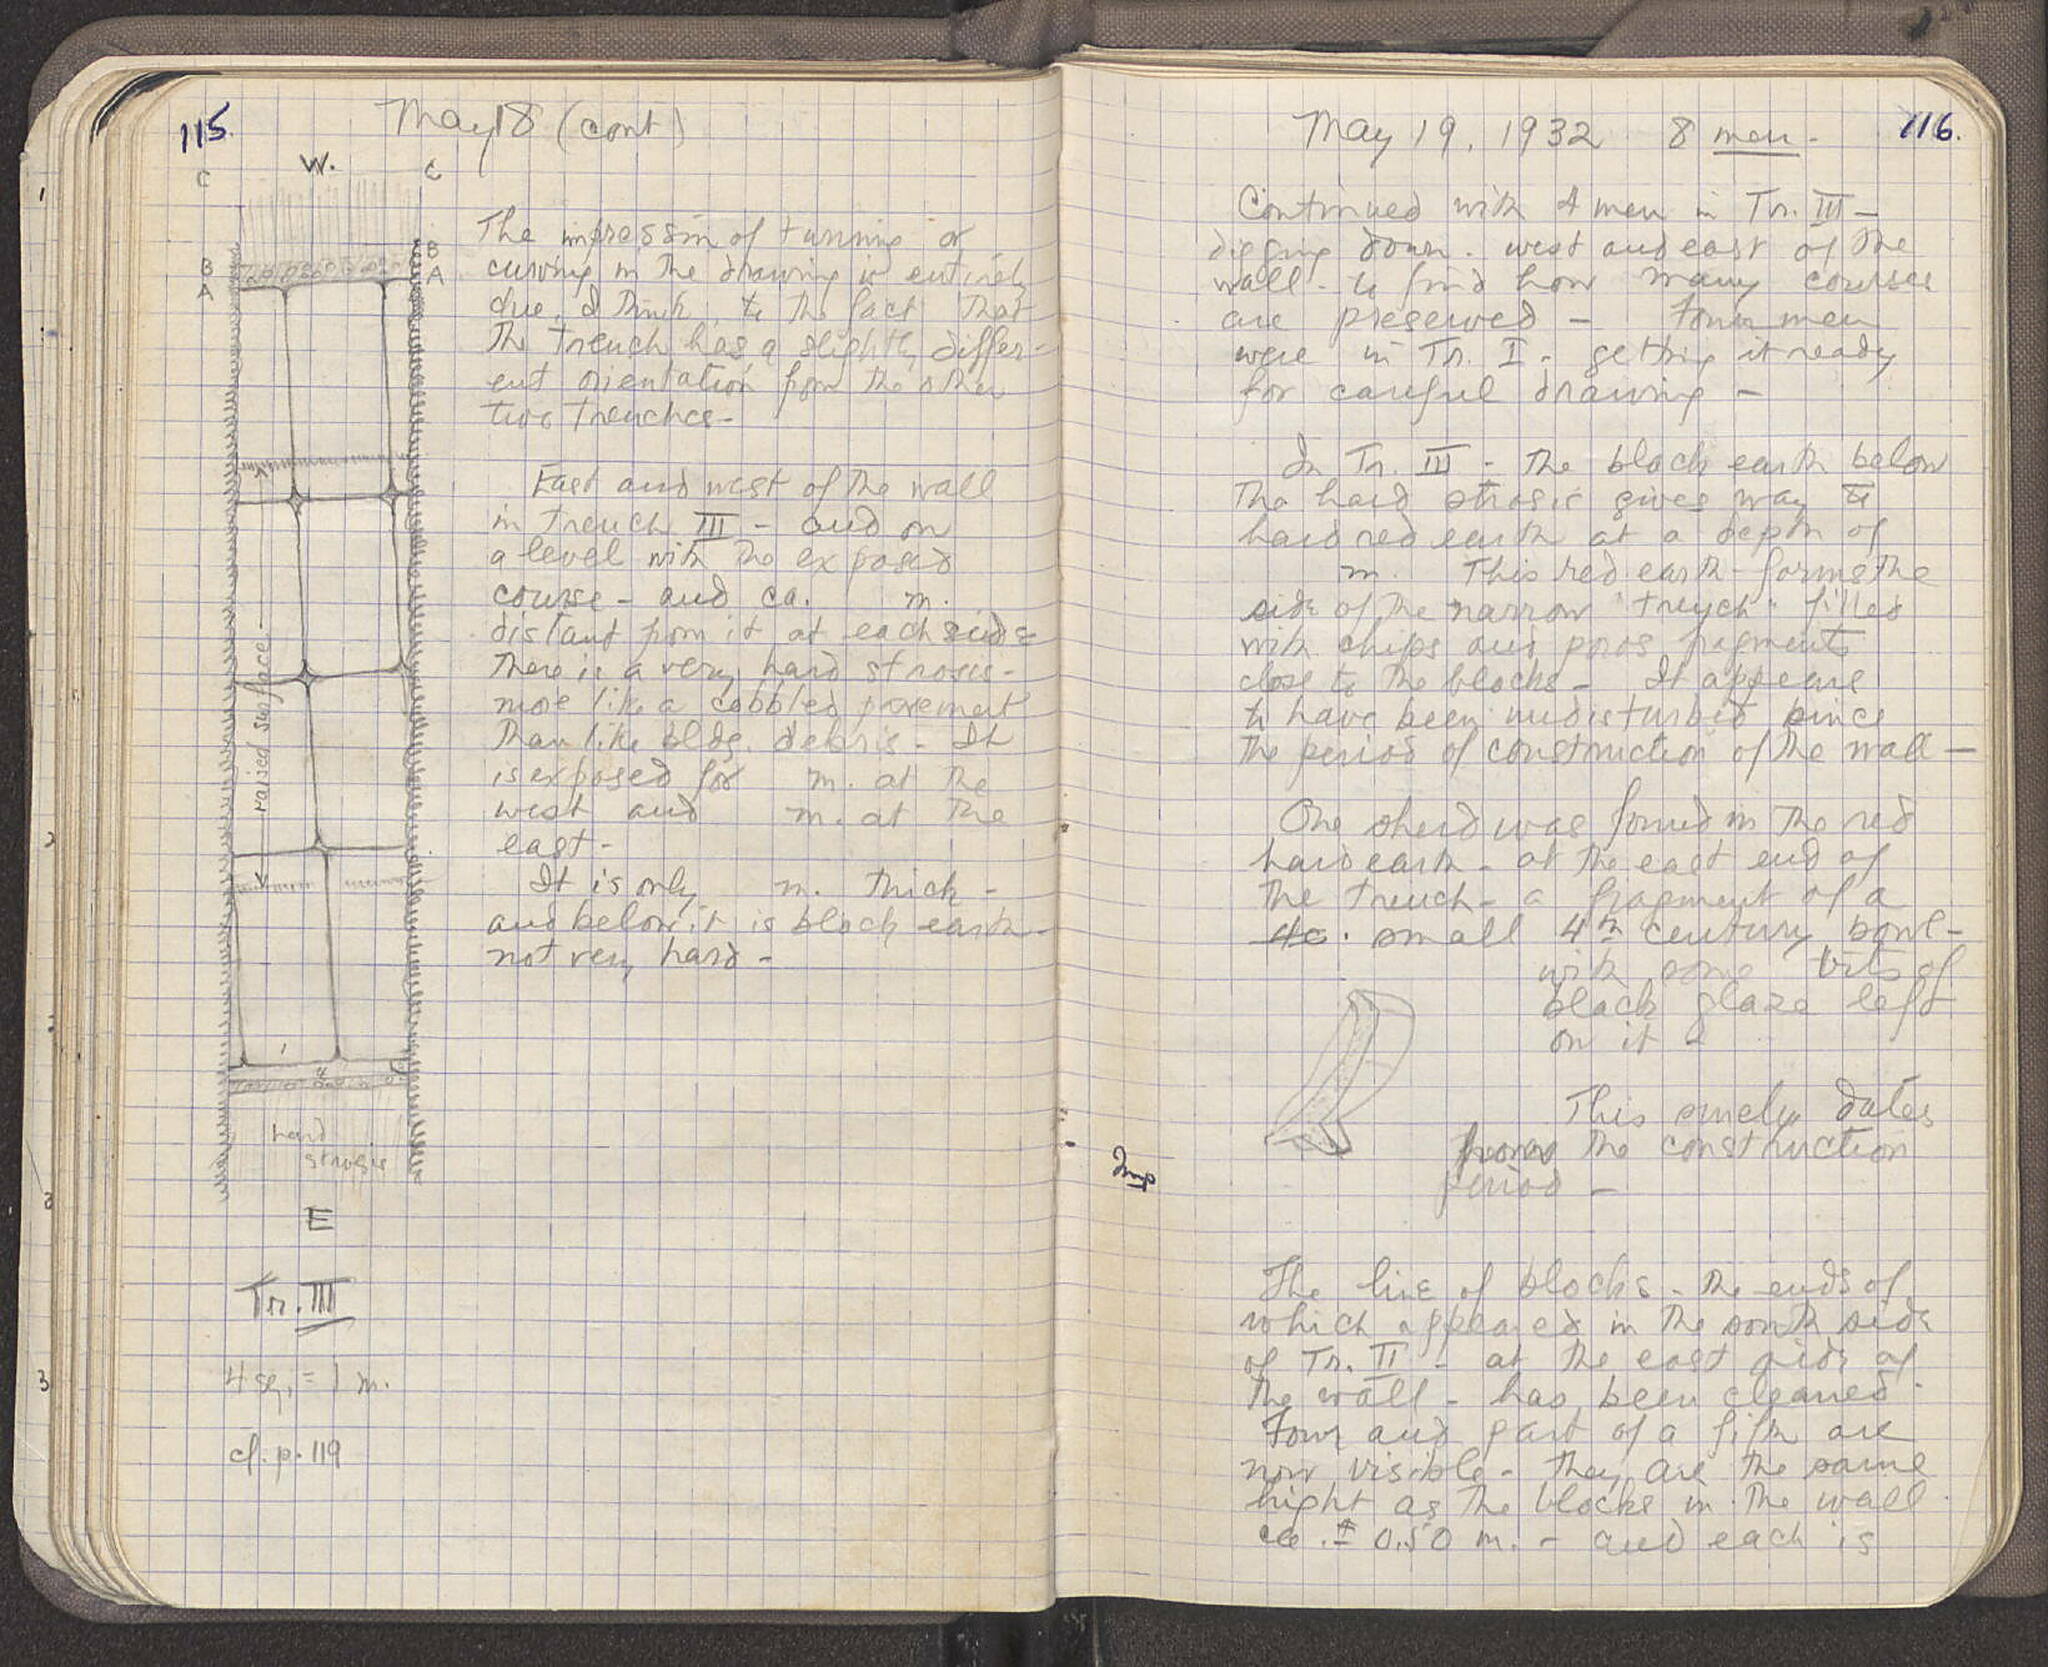 115
May 18 (cont)
C
W.
C
B
A
B
A
raised surface
hard
strosis
E
Tr. III
4 sq. = 1 m.
cf. p. 119
The impression of turning or
curving in the drawing is entirely
due, I think, to the fact that
the trench has a slightly differ-
ent orientation from the other
two trenches-
East and west of the wall
in trench III - and on
a level with the exposed
course - and ca. m.
distant from it at each side
there is a very hard strosis-
more like a cobbled pavement
than like bldg. debris - It
is exposed for m. at the
west and m. at the
east-
It is only m. thick-
and below it is black earth-
not very hard-
May 19, 1932 8 men-
116.
Continued with 4 men in Tr. III-
digging down - west and east of the
wall - to find how many courses
are preserved - Four men
were in Tr. I - getting it ready
for careful drawing -
In Tr. III - the black earth below
the hard strosis gives way to
hard red earth at a depth of
m. This red earth forms the
side of the narrow "trench" filled
with chips and poros fragments
close to the blocks - It appears
to have been undisturbed since
the period of construction of the wall -
One sherd was found in the red
hard earth - at the east end of
the trench - a fragment of a
4c. small 4th century bowl-
with some bits of
black glaze left
on it -
This surely dates
the construction
period -
Imp
The line of blocks - the ends of
which appeared in the south side
of Tr. II - at the east side of
the wall - has been cleaned.
Four and part of a fifth are
now visible - they are the same
hight as the blocks in the wall.
ca. ± 0.50 m. - and each is